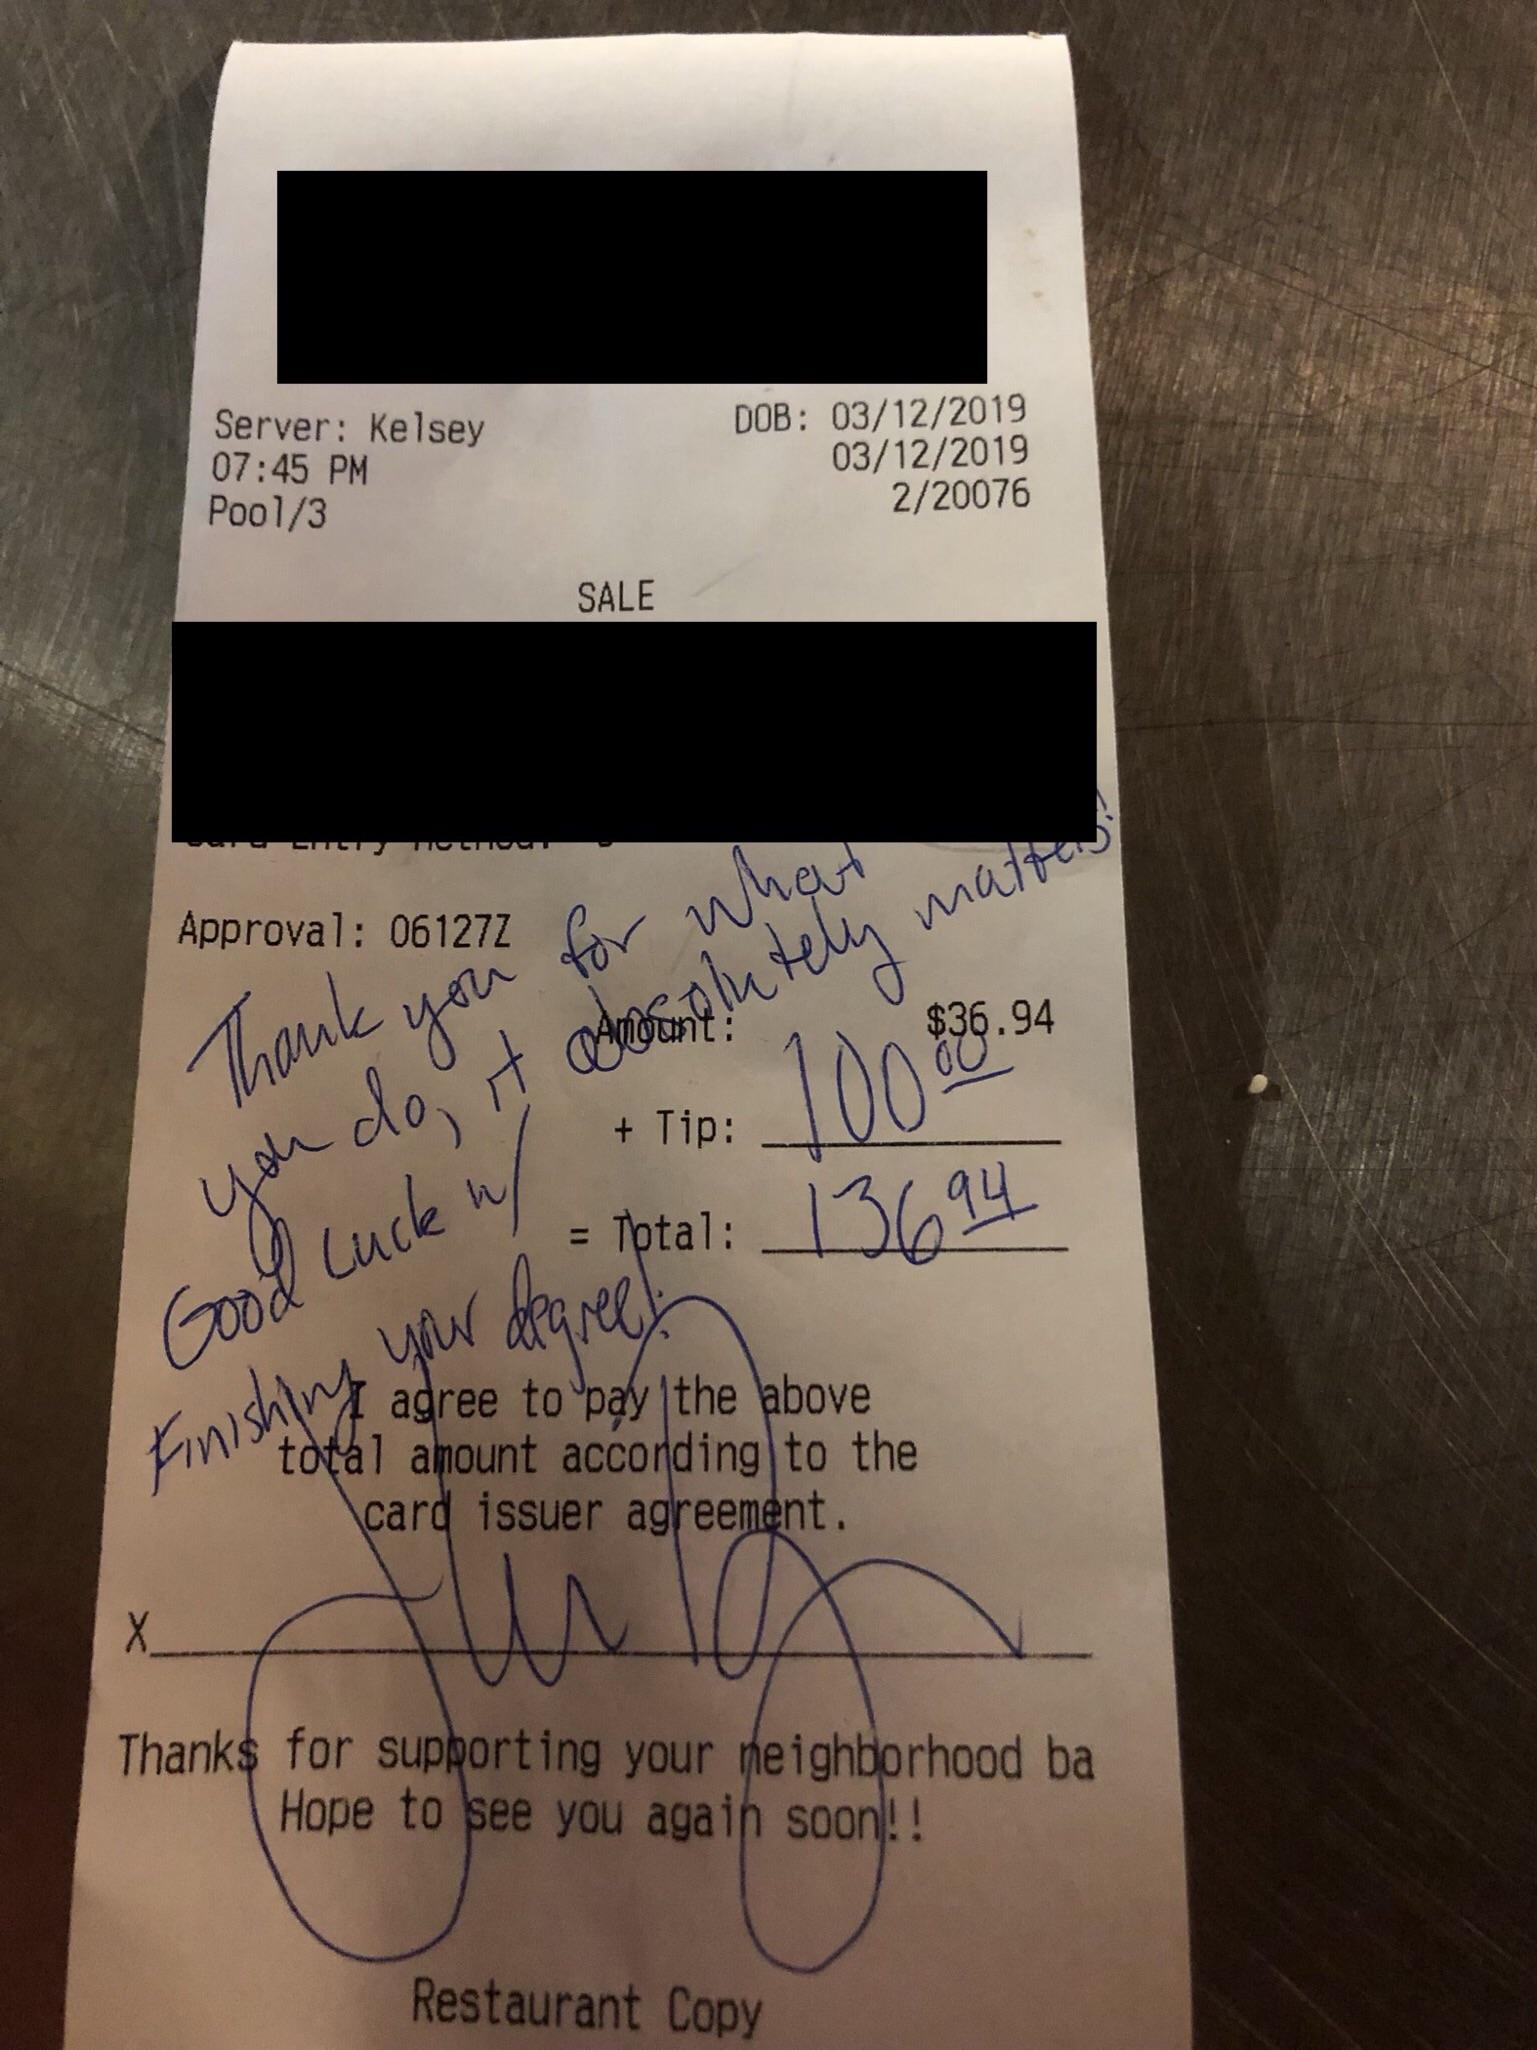 Server: Kelsey
DOB: 03/12/2019
07:45 PM
03/12/2019
Pool/3
2/20076
SALE
Card Entry Method:
Approval: 06127Z
Thank you for what
you do, it absolutely matters!
Good Luck w/
Finishing your degree!
Amount: $36.94
+ Tip: 100.00
= Total: 136.94
I agree to pay the above
total amount according to the
card issuer agreement.
X
Thanks for supporting your neighborhood ba
Hope to see you again soon!!
Restaurant Copy